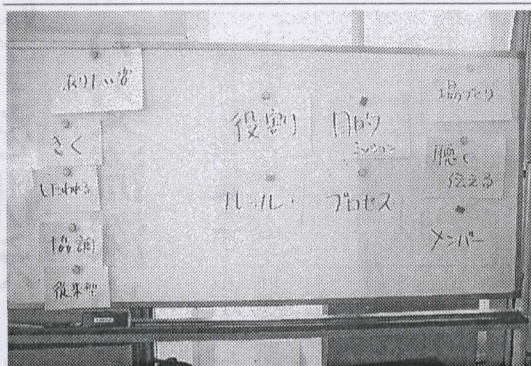 ありたい姿
きく
協調
従来型
役割
目的
ミッション
ルール
プロセス
場づくり
聴く
伝える
メンバー